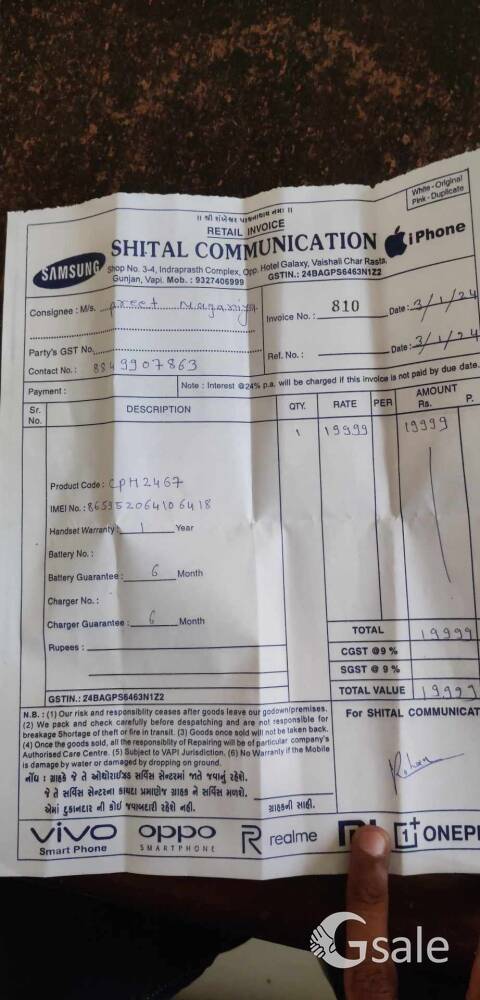 White - Original
Pink - Duplicate
RETAIL INVOICE
SAMSUNG
SHITAL COMMUNICATION
iPhone
Shop No. 3-4, Indraprasth Complex, Opp. Hotel Galaxy, Vaishali Char Rasta,
Gunjan, Vapi. Mob. : 9327406999
GSTIN.: 24BAGPS6463N1Z2
Consignee : M/s. preet
Invoice No. : 810 Date : 3/1/24
Party's GST No.
Ref. No. : Date : 3/1/24
Contact No. : 8849907863
Note : Interest @24% p.a. will be charged if this invoice is not paid by due date.
Payment :
Sr. No. DESCRIPTION QTY. RATE PER AMOUNT Rs. P.
1 19999 19999
Product Code : CPH2467
IMEI No. : 865952064106418
Handset Warranty : 1 Year
Battery No. :
Battery Guarantee : 6 Month
Charger No. :
Charger Guarantee : 6 Month
Rupees :
TOTAL 19999
CGST @9 %
SGST @ 9 %
TOTAL VALUE 19999
GSTIN.: 24BAGPS6463N1Z2
N.B. : (1) Our risk and responsiblity ceases after goods leave our godown/premises.
(2) We pack and check carefully before despatching and are not responsible for
breakage Shortage of theft or fire in transit. (3) Goods once sold will not be taken back.
(4) Once the goods sold, all the responsiblity of Repairing will be of particular company's
Authorised Care Centre. (5) Subject to VAPI Jurisdiction, (6) No Warranty if the Mobile
is damage by water or damaged by dropping on ground.
For SHITAL COMMUNICAT
નોંધ : ગ્રાહકે જે તે ઓથોરાઈઝડ સર્વિસ સેન્ટરમાં જાતે જવાનું રહેશે.
જે તે સર્વિસ સેન્ટરના કાયદા પ્રમાણેજ ગ્રાહક ને સર્વિસ મળશે.
એમાં દુકાનદાર ની કોઈ જવાબદારી રહેશે નહી.
ગ્રાહકની સાહી.
vivo
Smart Phone
oppo
SMARTPHONE
R realme
1+ ONEPL
Gsale